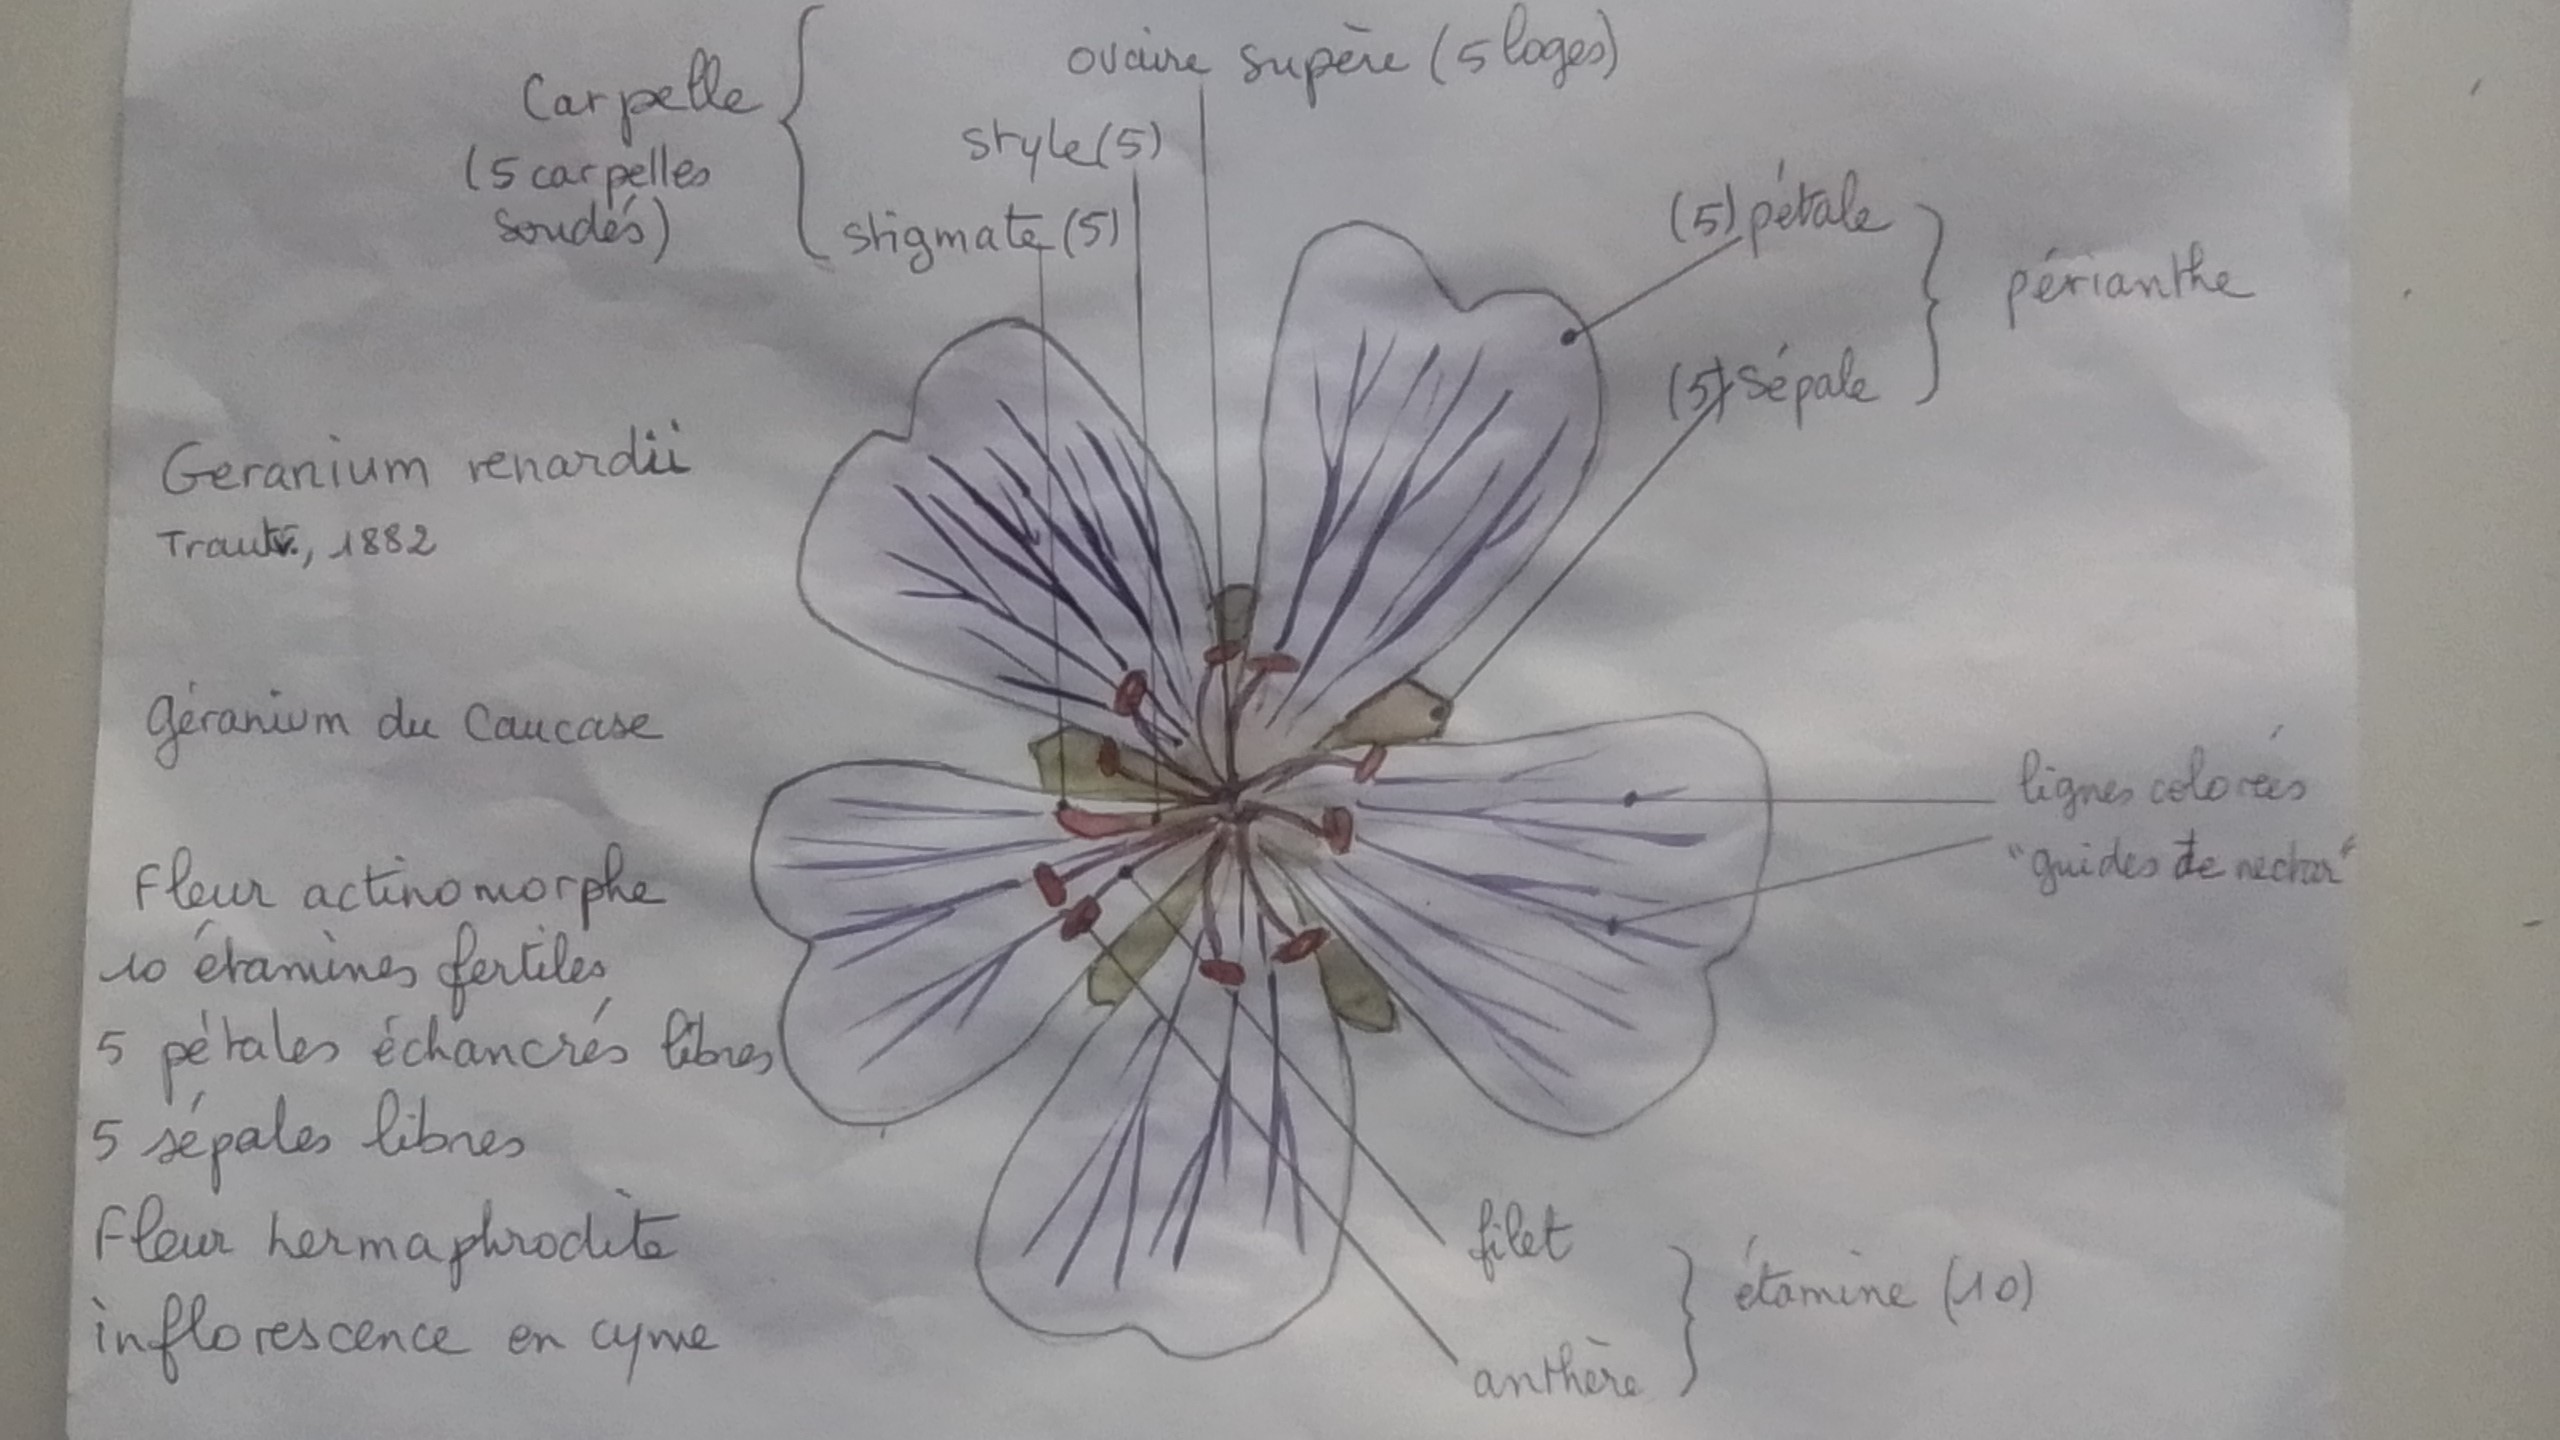 ovaire supère (5 loges)
Carpelle
(5 carpelles
soudés)
style (5)
stigmate (5)
(5) pétale
(5) sépale
périanthe
Geranium renardii
Trautv., 1882
géranium du Caucase
lignes colorées
"guides de nectar"
Fleur actinomorphe
10 étamines fertiles
5 pétales échancrés libres
5 sépales libres
Fleur hermaphrodite
inflorescence en cyme
filet
anthère
étamine (10)